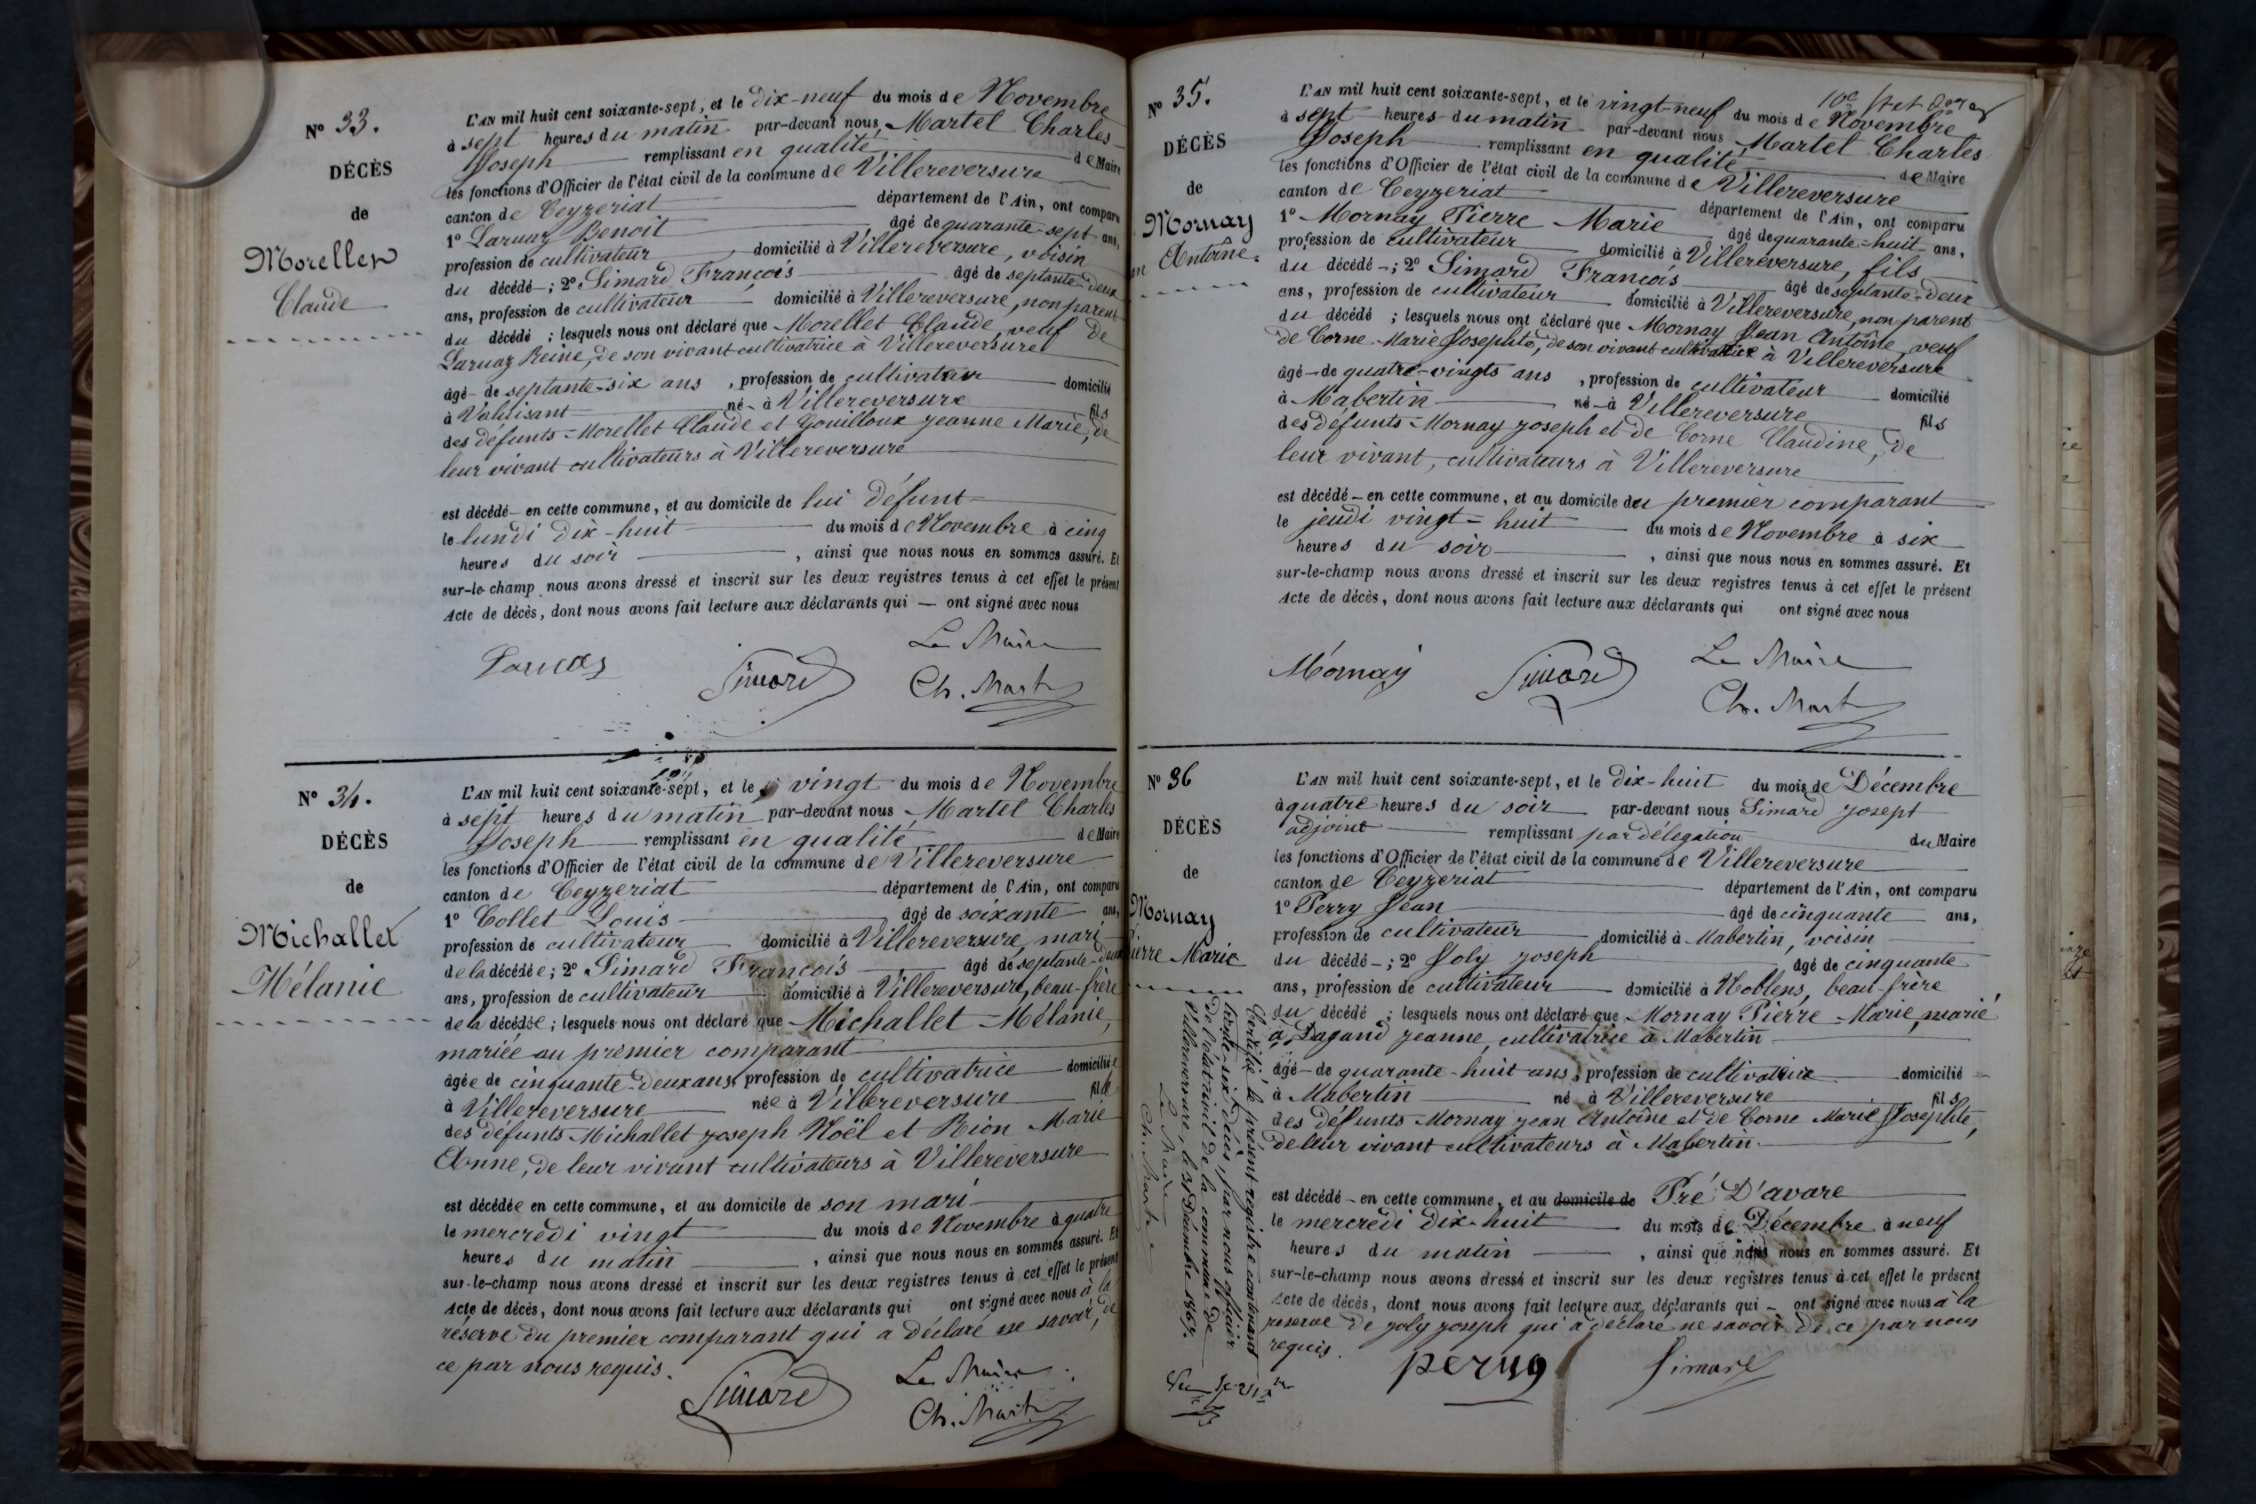 N° 33.
DÉCÈS
de
Morellet
Claude
L'AN mil huit cent soixante-sept, et le dix-neuf du mois de Novembre
à sept heures du matin par-devant nous Martel Charles
Joseph remplissant en qualité de Maire
les fonctions d'Officier de l'état civil de la commune de Villereversure
canton de Ceyzeriat département de l'Ain, ont comparu
1° Laruaz Benoit âgé de quarante-sept ans,
profession de cultivateur domicilié à Villereversure, voisin
du décédé ; 2° Simard François âgé de septante-deux
ans, profession de cultivateur domicilié à Villereversure, non parent
du décédé ; lesquels nous ont déclaré que Morellet Claude, veuf de
Laruaz Reine, de son vivant cultivatrice à Villereversure
âgé de septante-six ans, profession de cultivateur domicilié
à Valuisant né à Villereversure fils
des défunts Morellet Claude et Gouilloux Jeanne Marie, de
leur vivant cultivateurs à Villereversure
est décédé en cette commune, et au domicile de lui défunt
le lundi dix-huit du mois de Novembre à cinq
heures du soir, ainsi que nous nous en sommes assuré. Et
sur-le-champ nous avons dressé et inscrit sur les deux registres tenus à cet effet le présent
Acte de décès, dont nous avons fait lecture aux déclarants qui — ont signé avec nous
Le Maire
Laruaz Simard Ch. Martel
N° 34.
DÉCÈS
de
Michallet
Mélanie
L'AN mil huit cent soixante-sept, et le vingt du mois de Novembre
à sept heures du matin par-devant nous Martel Charles
Joseph remplissant en qualité de Maire
les fonctions d'Officier de l'état civil de la commune de Villereversure
canton de Ceyzeriat département de l'Ain, ont comparu
1° Collet Louis âgé de soixante ans,
profession de cultivateur domicilié à Villereversure, mari
de la décédée ; 2° Simard François âgé de septante-deux
ans, profession de cultivateur domicilié à Villereversure, beau-frère
de la décédée ; lesquels nous ont déclaré que Michallet Mélanie,
mariée au premier comparant
âgée de cinquante-deux ans, profession de cultivatrice domiciliée
à Villereversure née à Villereversure fille
des défunts Michallet Joseph Noël et Bion Marie
Anne, de leur vivant cultivateurs à Villereversure
est décédée en cette commune, et au domicile de son mari
le mercredi vingt du mois de Novembre à quatre
heures du matin, ainsi que nous nous en sommes assuré. Et
sur-le-champ nous avons dressé et inscrit sur les deux registres tenus à cet effet le présent
Acte de décès, dont nous avons fait lecture aux déclarants qui ont signé avec nous à la
réserve du premier comparant qui a déclaré ne savoir, de
ce par nous requis.
Le Maire
Simard Ch. Martel
N° 35.
DÉCÈS
de
Mornay
Jean Antoine.
L'AN mil huit cent soixante-sept, et le vingt-neuf du mois de Novembre
à sept heures du matin par-devant nous Martel Charles
Joseph remplissant en qualité de Maire
les fonctions d'Officier de l'état civil de la commune de Villereversure
canton de Ceyzeriat département de l'Ain, ont comparu
1° Mornay Pierre Marie âgé de quarante-huit ans,
profession de cultivateur domicilié à Villereversure, fils
du décédé ; 2° Simard François âgé de septante-deux
ans, profession de cultivateur domicilié à Villereversure, non parent
du décédé ; lesquels nous ont déclaré que Mornay Jean Antoine, veuf
de Corne Marie Josephte, de son vivant cultivatrice à Villereversure
âgé de quatre-vingts ans, profession de cultivateur domicilié
à Mabertin né à Villereversure fils
des défunts Mornay Joseph et de Corne Claudine, de
leur vivant, cultivateurs à Villereversure
est décédé en cette commune, et au domicile du premier comparant
le jeudi vingt-huit du mois de Novembre à six
heures du soir, ainsi que nous nous en sommes assuré. Et
sur-le-champ nous avons dressé et inscrit sur les deux registres tenus à cet effet le présent
Acte de décès, dont nous avons fait lecture aux déclarants qui ont signé avec nous
Le Maire
Mornay Simard Ch. Martel
N° 36
DÉCÈS
de
Mornay
Pierre Marie
L'AN mil huit cent soixante-sept, et le dix-huit du mois de Décembre
à quatre heures du soir par-devant nous Simard Joseph
adjoint remplissant par délégation du Maire
les fonctions d'Officier de l'état civil de la commune de Villereversure
canton de Ceyzeriat département de l'Ain, ont comparu
1° Perry Jean âgé de cinquante ans,
profession de cultivateur domicilié à Mabertin, voisin
du décédé ; 2° Joly Joseph âgé de cinquante
ans, profession de cultivateur domicilié à Noblens, beau-frère
du décédé ; lesquels nous ont déclaré que Mornay Pierre Marie, marié
à Pagand Jeanne, cultivatrice à Mabertin
âgé de quarante-huit ans, profession de cultivateur domicilié
à Mabertin né à Villereversure fils
des défunts Mornay Jean Antoine et de Corne Marie Josephte,
de leur vivant cultivateurs à Mabertin.
est décédé en cette commune, et au domicile de Pré D'avare
le mercredi dix-huit du mois de Décembre à neuf
heures du matin, ainsi que nous nous en sommes assuré. Et
sur-le-champ nous avons dressé et inscrit sur les deux registres tenus à cet effet le présent
Acte de décès, dont nous avons fait lecture aux déclarants qui — ont signé avec nous à la
réserve de Joly Joseph qui a déclaré ne savoir de ce par nous
requis.
Simard
Clôturé le présent registre contenant
trente-six décès, par nous officier
de l'état civil de la commune de
Villereversure, le 31 Décembre 1867.
Le Maire
Ch. Martel